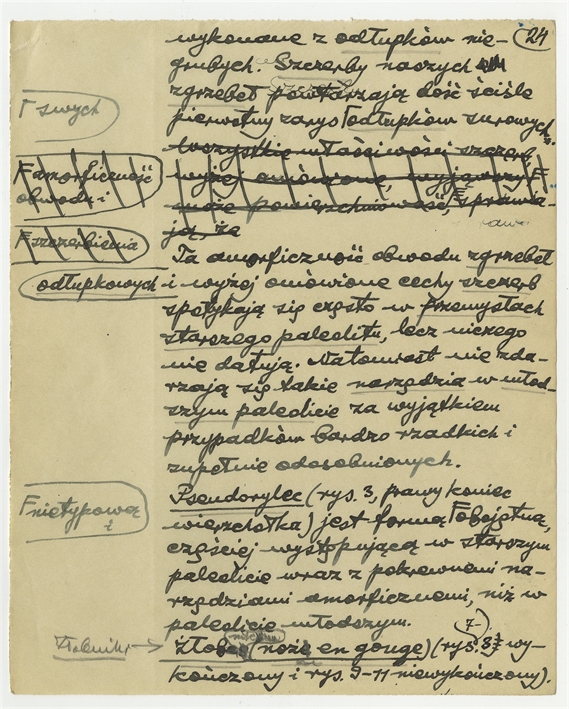 24
wykonane z odłupków nie-
grubych. Szczerby naszych
zgrzebeł powtarzają dość ściśle
Γ swych
pierwotny zarys Γ odłupków surowych.
Wszystkie właściwości szczerb
Γ amorficzność
wyżej omówione, wyjąwszy Γ
obwodu i
moje powierzchniowość, Γ sprawia-
ją, że
Γ szczerbienia
Ta amorficzność obwodu zgrzebeł
odłupkowych i wyżej omówione cechy szczerb
spotykają się często w przemysłach
starszego paleolitu, lecz niczego
nie datują. Natomiast nie zda-
rzają się takie narzędzia w młod-
szym paleolicie za wyjątkiem
przypadków bardzo rzadkich i
zupełnie odosobnionych.
Γ nietypową i
Pseudorylec (rys. 3, prawy koniec
wierzchołka) jest formą Γ obojętną,
częściej występującą w starszym
paleolicie wraz z pokrewnemi na-
rzędziami amorficznemi, niż w
paleolicie młodszym.
7
Żłobnik → Żłobce (noże en gouge) (rys. 8 wy-
kończony i rys. 9-11 niewykończony).